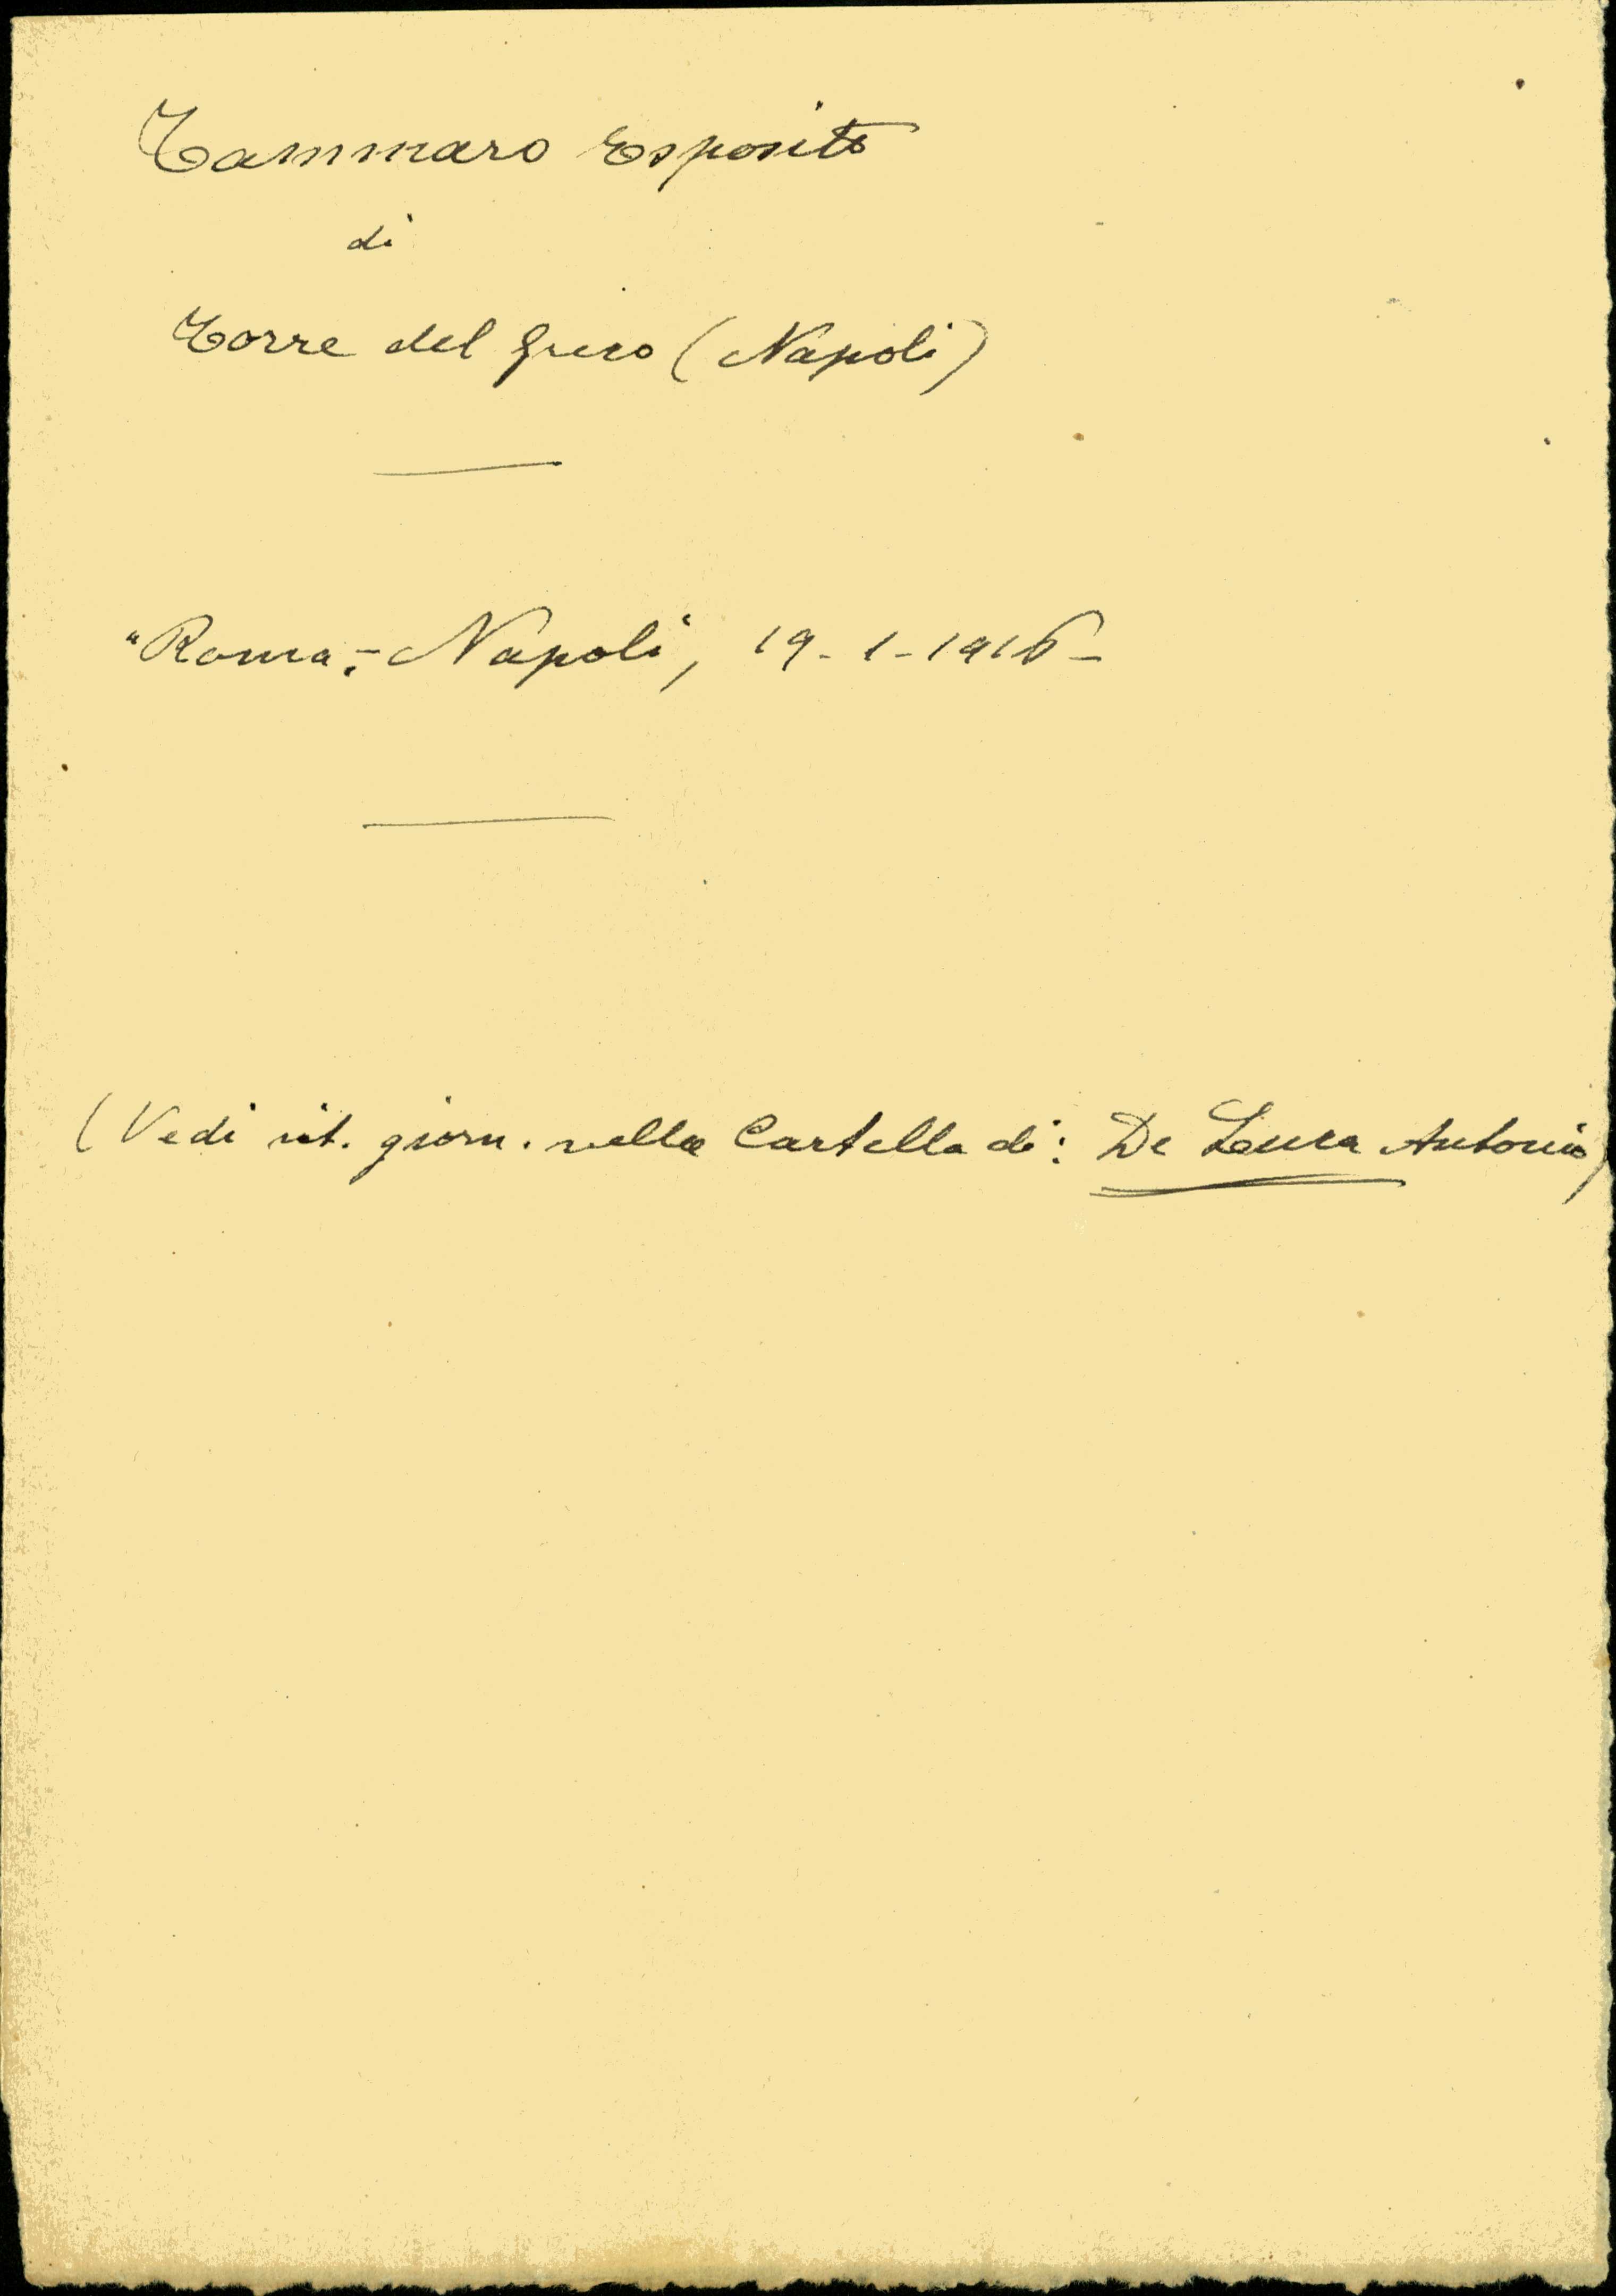 Tammaro Esposito
di
Torre del Greco (Napoli)
"Roma:- Napoli, 19-1-1916-
(Vedi rit. giorn. nella Cartella di: De Luca Antonio)